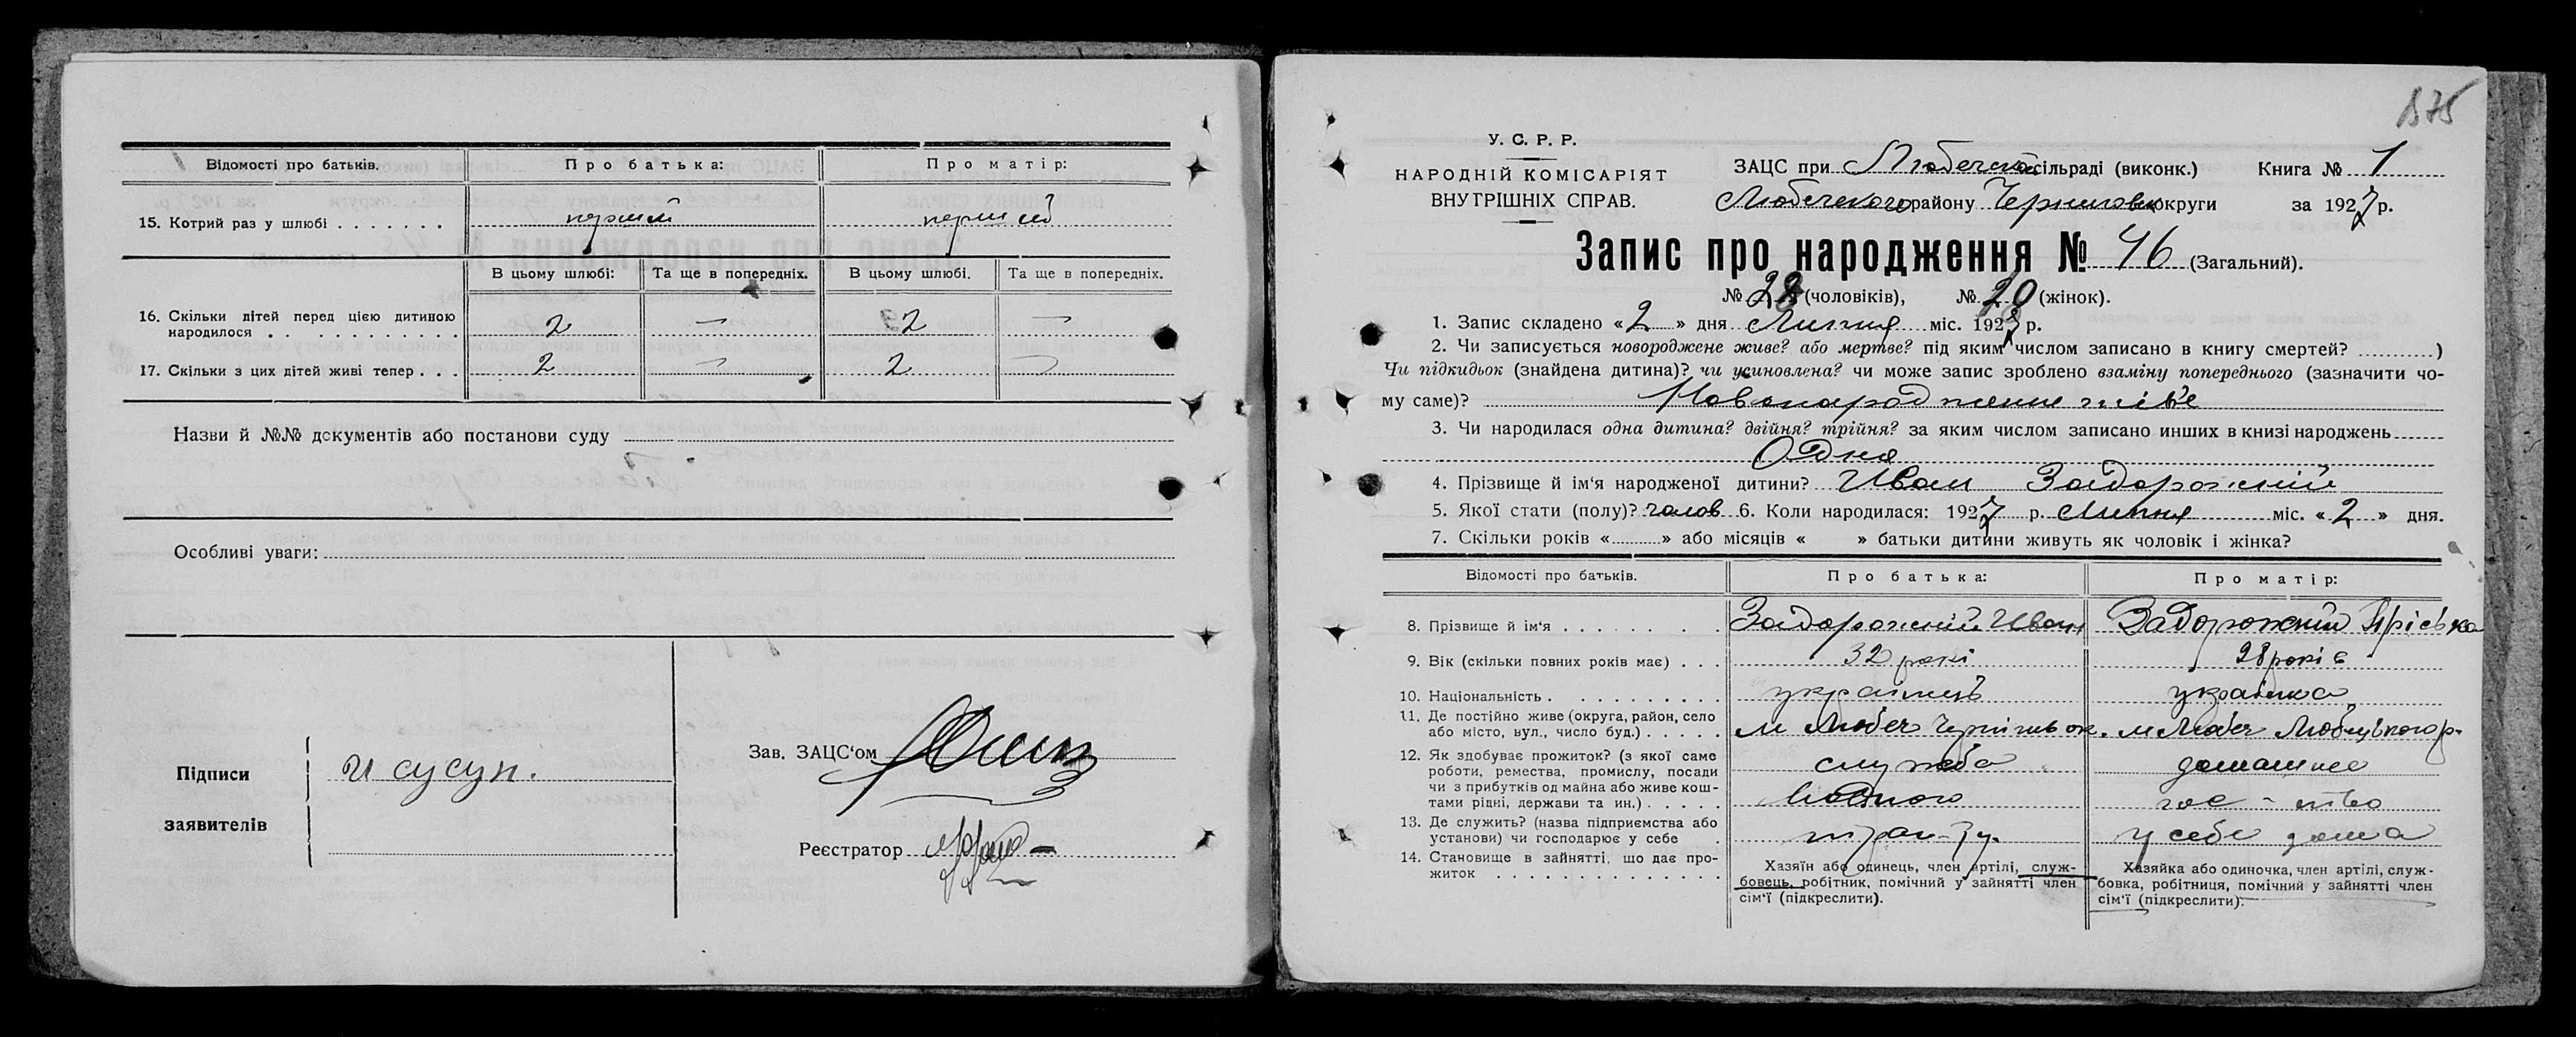 Відомості про батьків. Про батька: Про матір:
15. Котрий раз у шлюбі . . . . . . . перший перший
В цьому шлюбі: Та ще в попередніх. В цьому шлюбі. Та ще в попередніх.
16. Скільки дітей перед цією дитиною
народилося . . . . . . . . . . . 2 — 2 —
17. Скільки з цих дітей живі тепер . . . 2 — 2 —
Назви й №№ документів або постанови суду
Особливі уваги:
Підписи
заявителів
Зав. ЗАЦС‘ом
Реєстратор
У. С. Р. Р.
НАРОДНІЙ КОМІСАРІЯТ
ВНУТРІШНІХ СПРАВ.
ЗАЦС при Любечской сільраді (виконк.) Книга № 1
Любечского району Черниговск округи за 1927 р.
Запис про народження № 46 (Загальний).
№ 28 (чоловіків), № 20 (жінок).
1. Запис складено «2» дня Липня міс. 1927 р.
2. Чи записується новороджене живе? або мертве? під яким числом записано в книгу смертей? ...........)
Чи підкидьок (знайдена дитина)? чи усиновлена? чи може запис зроблено взаміну попереднього (зазначити чо-
му саме)? Новонароджене живе
3. Чи народилася одна дитина? двійня? трійня? за яким числом записано инших в книзі народжень
Одна
4. Прізвище й ім‘я народженої дитини? Иван Задорожній
5. Якої стати (полу)? чолов 6. Коли народилася: 1927 р. Липня міс. «2» дня.
7. Скільки років «..........» або місяців « » батьки дитини живуть як чоловік і жінка?
Відомості про батьків. Про батька: Про матір:
8. Прізвище й ім‘я . . . . . . . . Задорожній Иван Задорожній Пріська
9. Вік (скільки повних років має) . . . 32 рокі 28 років
10. Національність . . . . . . . . . . українець українка
11. Де постійно живе (округа, район, село
або місто, вул., число буд.) . . . . . м Любеч Чернігівь ок. м Любеч Любецького р.
12. Як здобуває прожиток? (з якої саме
роботи, ремества, промислу, посади
чи з прибутків од майна або живе кош-
тами рідні, держави та ин.) . . . . . служба Водного домашнее гос-тво
13. Де служить? (назва підприємства або
установи) чи господарює у себе . тран-ту. у себе дома
14. Становище в зайнятті, що дає про-
житок . . . . . . . . . . . . . . .
Хазяїн або одинець, член артілі, служ-
бовець, робітник, помічний у зайнятті член
сім‘ї (підкреслити).
Хазяйка або одиночка, член артілі, служ-
бовка, робітниця, помічний у зайнятті член
сім‘ї (підкреслити).